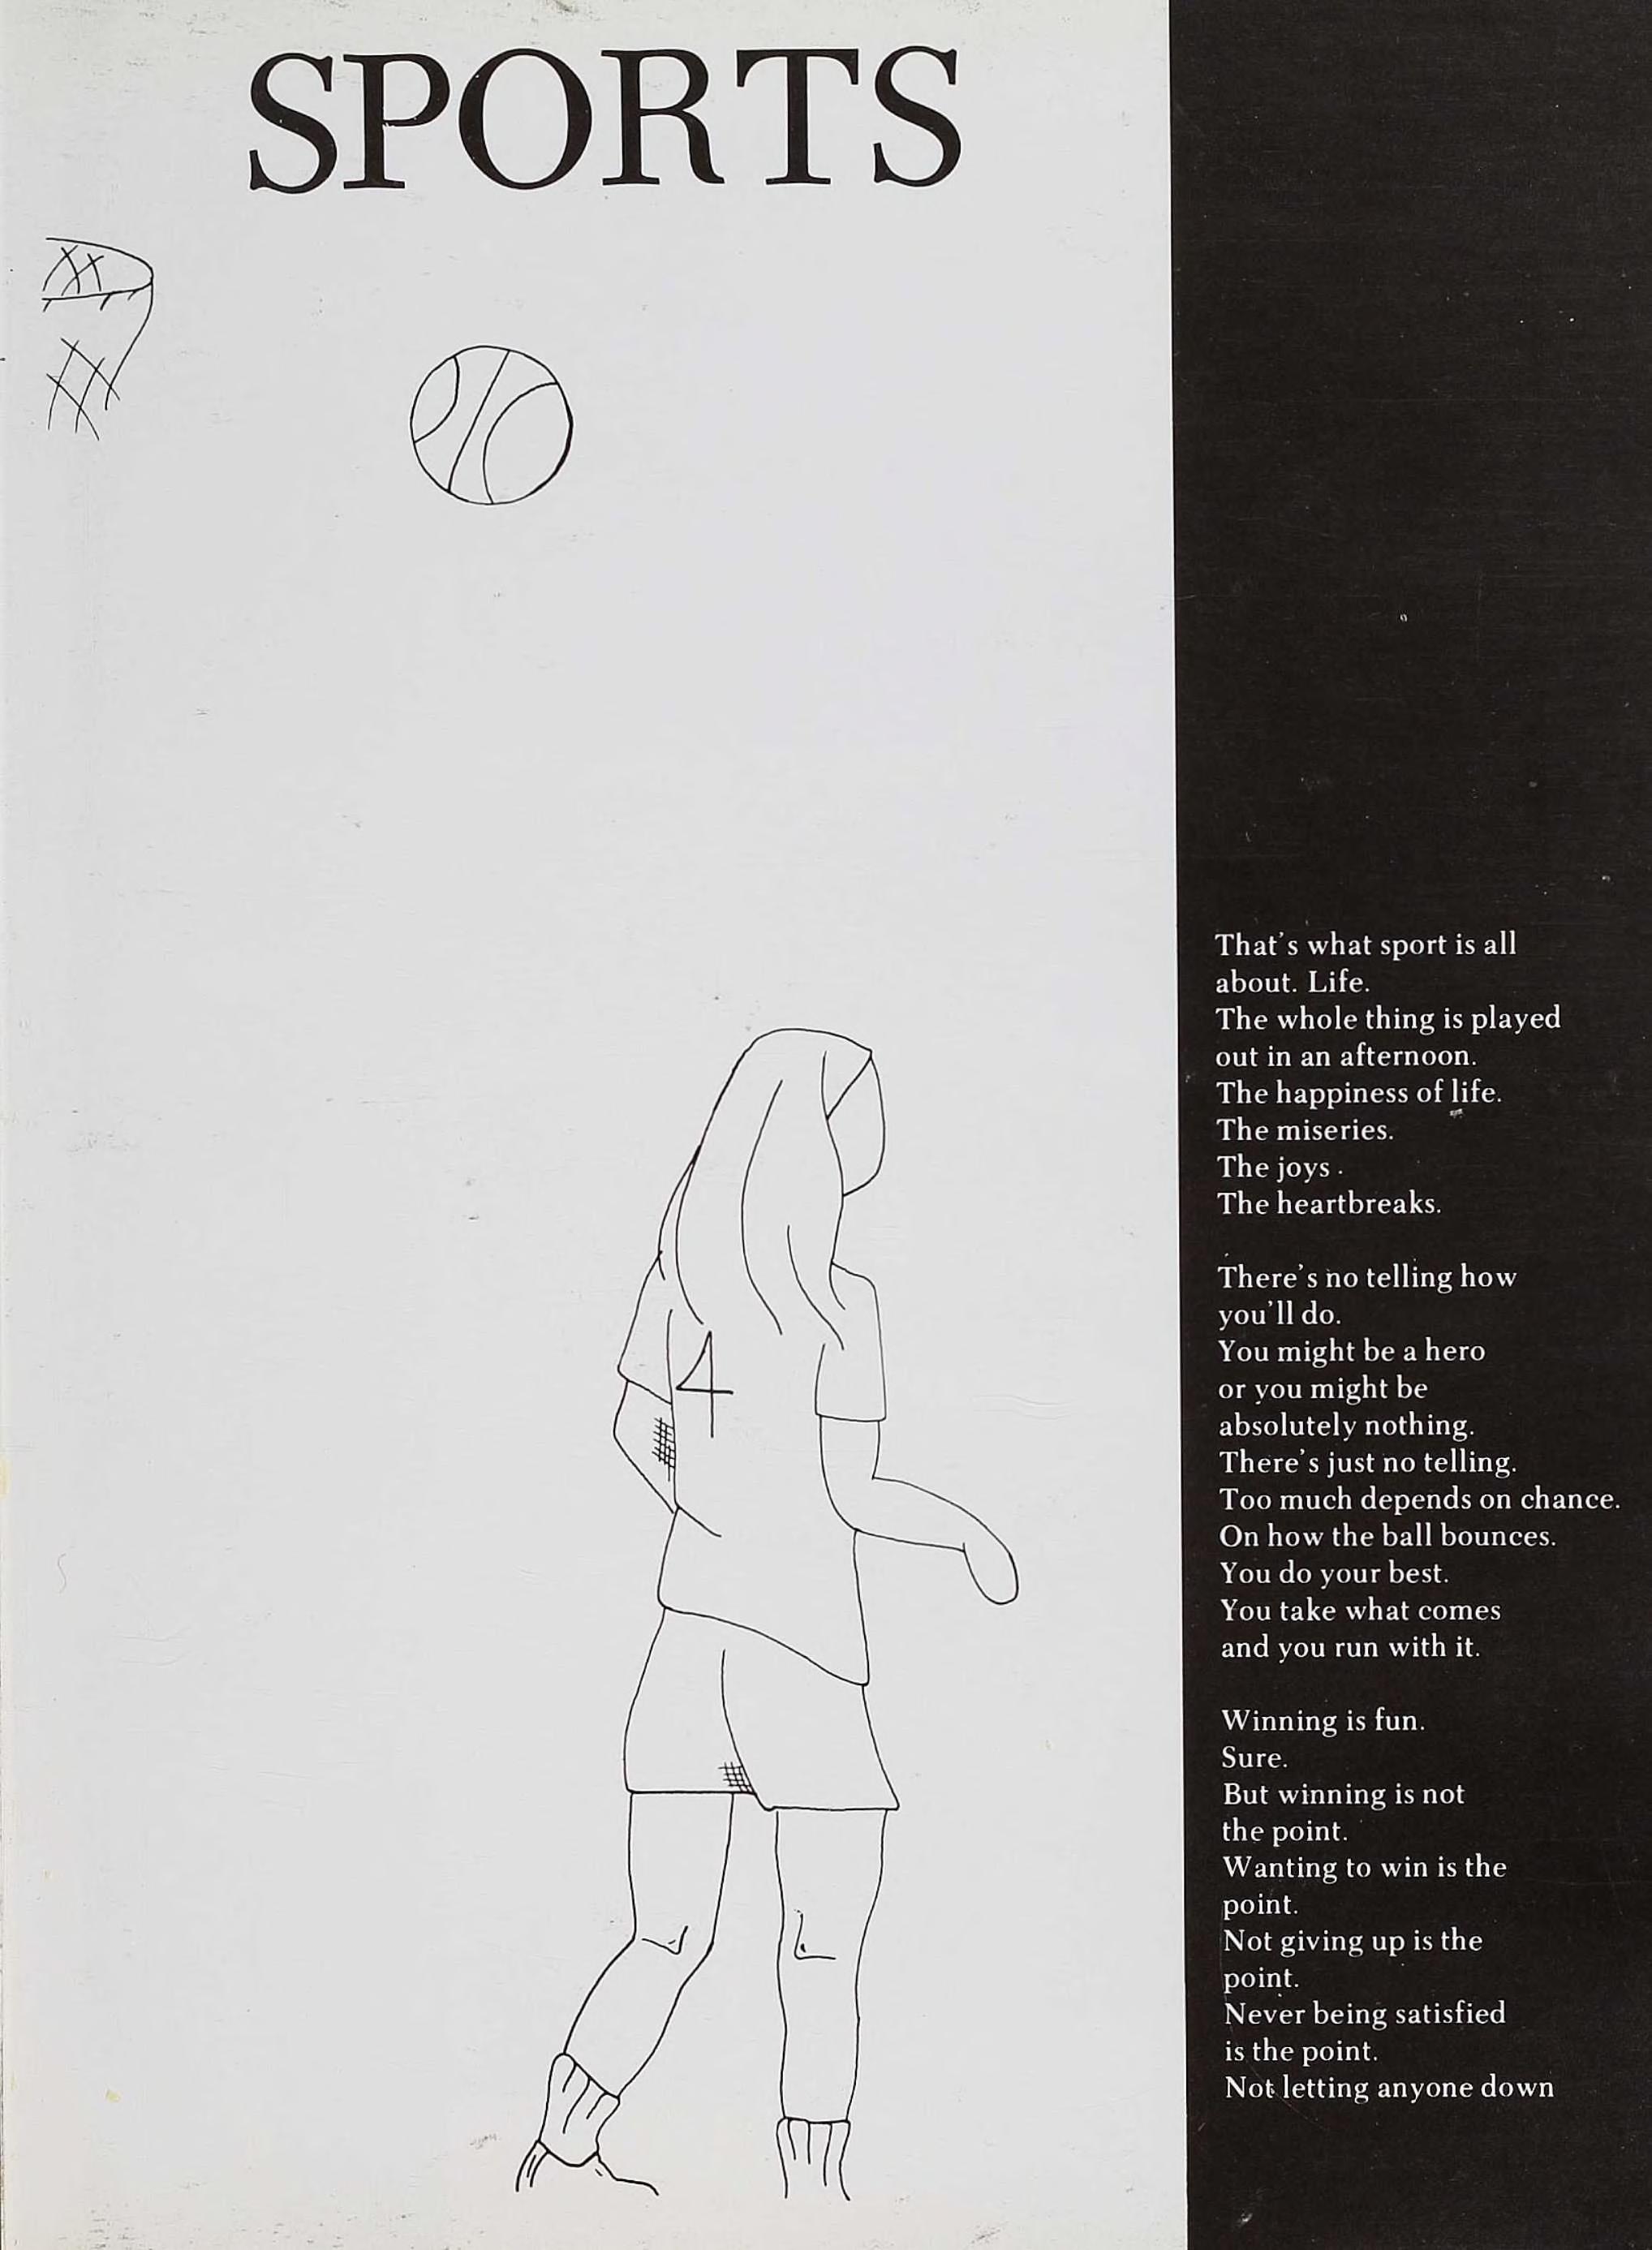 SPORTS
4
That's what sport is all
about. Life.
The whole thing is played
out in an afternoon.
The happiness of life.
The miseries.
The joys.
The heartbreaks.
There's no telling how
you'll do.
You might be a hero
or you might be
absolutely nothing.
There's just no telling.
Too much depends on chance.
On how the ball bounces.
You do your best.
You take what comes
and you run with it.
Winning is fun.
Sure.
But winning is not
the point.
Wanting to win is the
point.
Not giving up is the
point.
Never being satisfied
is the point.
Not letting anyone down